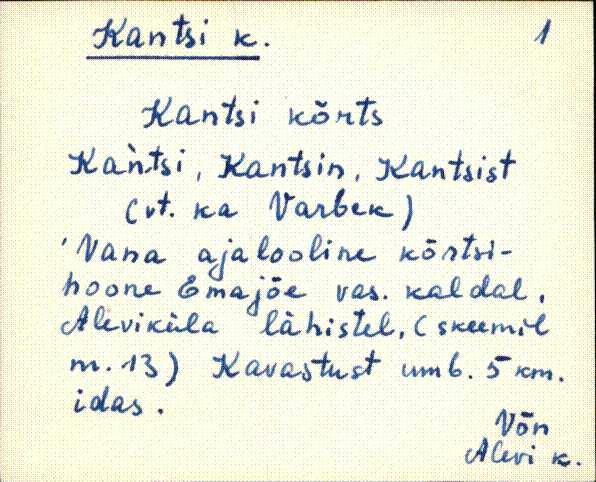 Kantsi k. 1
Kantsi kõrts
Kàntsi, Kantsin, Kantsist
(vt. ka Varbek)
'Vana ajalooline kõrtsi-
hoone Emajõe vas. kaldal,
Aleviküla lähistel, (skeemil
nr. 13) Kavastust umb. 5 km.
idas.
Võn
Alevi k.